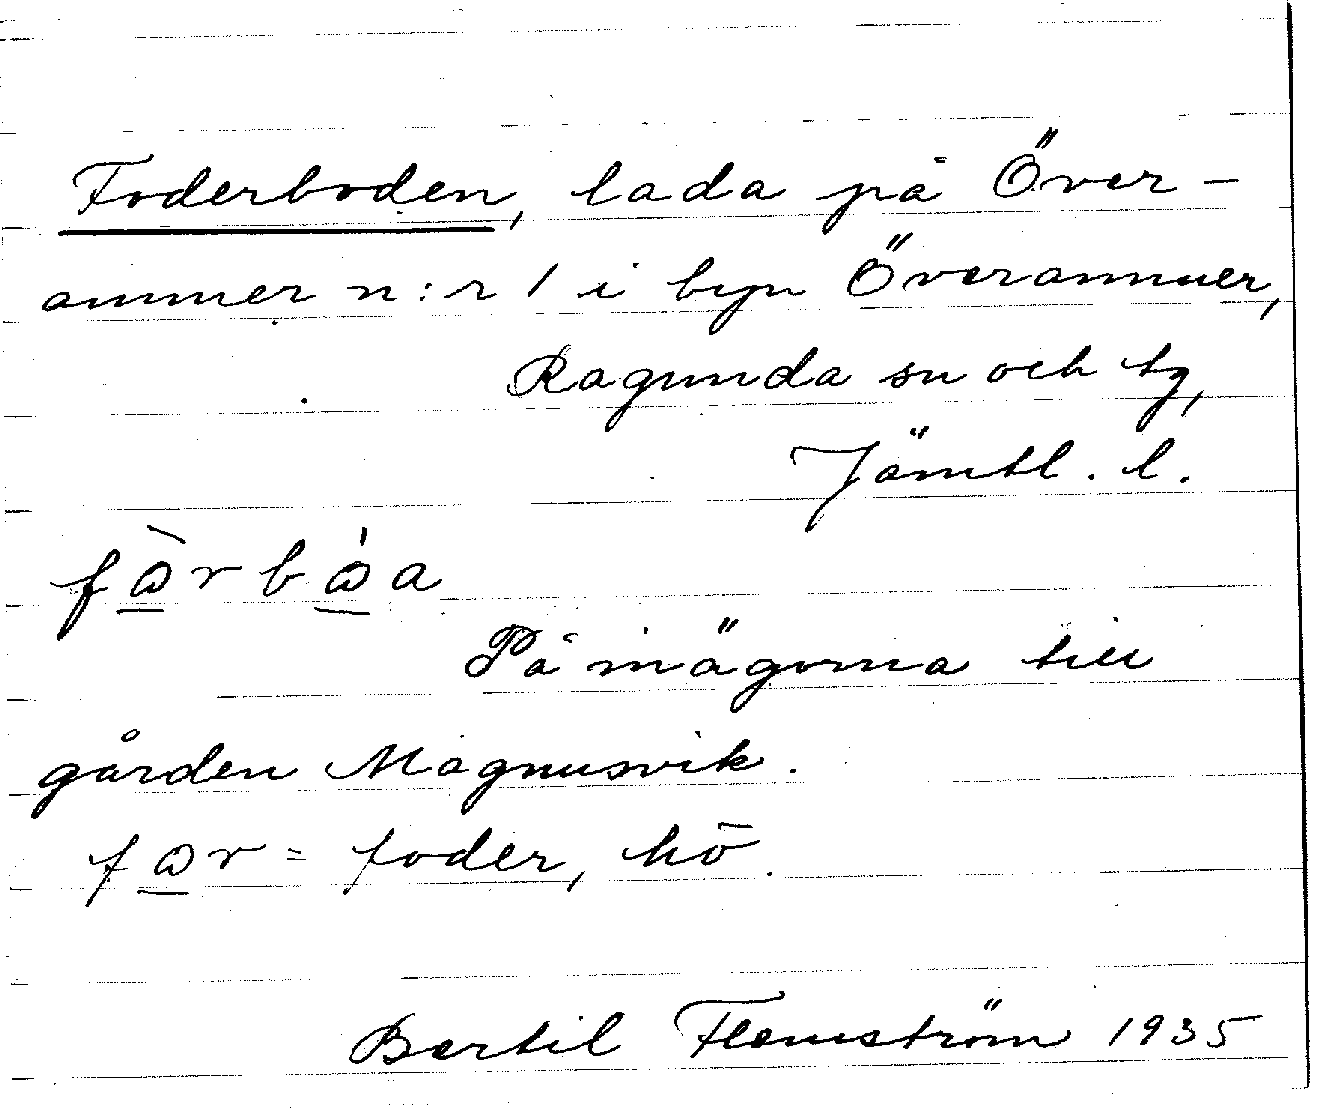 Foderboden, lada på Över-
ammer n:r 1 i byn Överammer,
Ragunda sn och tg,
Jämtl. l.
fɷ̀rbɷ́a
På inägorna till
gården Magnusvik.
fɷr = foder, hö.
Bertil Flemström 1935